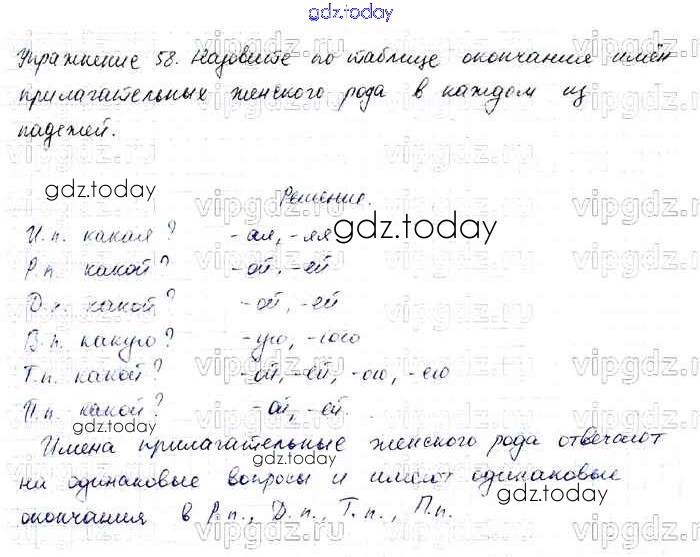 gdz.today
Упражнение 58. Назовите по таблице окончания имён
прилагательных женского рода в каждом из
падежей.
gdz.today
Решение.
И.п. какая? -ая, -яя gdz.today
Р.п. какой? -ой, -ей
Д.п. какой? -ой, -ей
В.п. какую? -ую, -юю
Т.п. какой? -ой, -ей, -ою, -ею
П.п. какой? -ой, -ей.
gdz.today
Имена прилагательные женского рода отвечают
на одинаковые вопросы и имеют одинаковые
gdz.today
окончания в Р.п., Д.п., Т.п., П.п.
vipgdz.ru